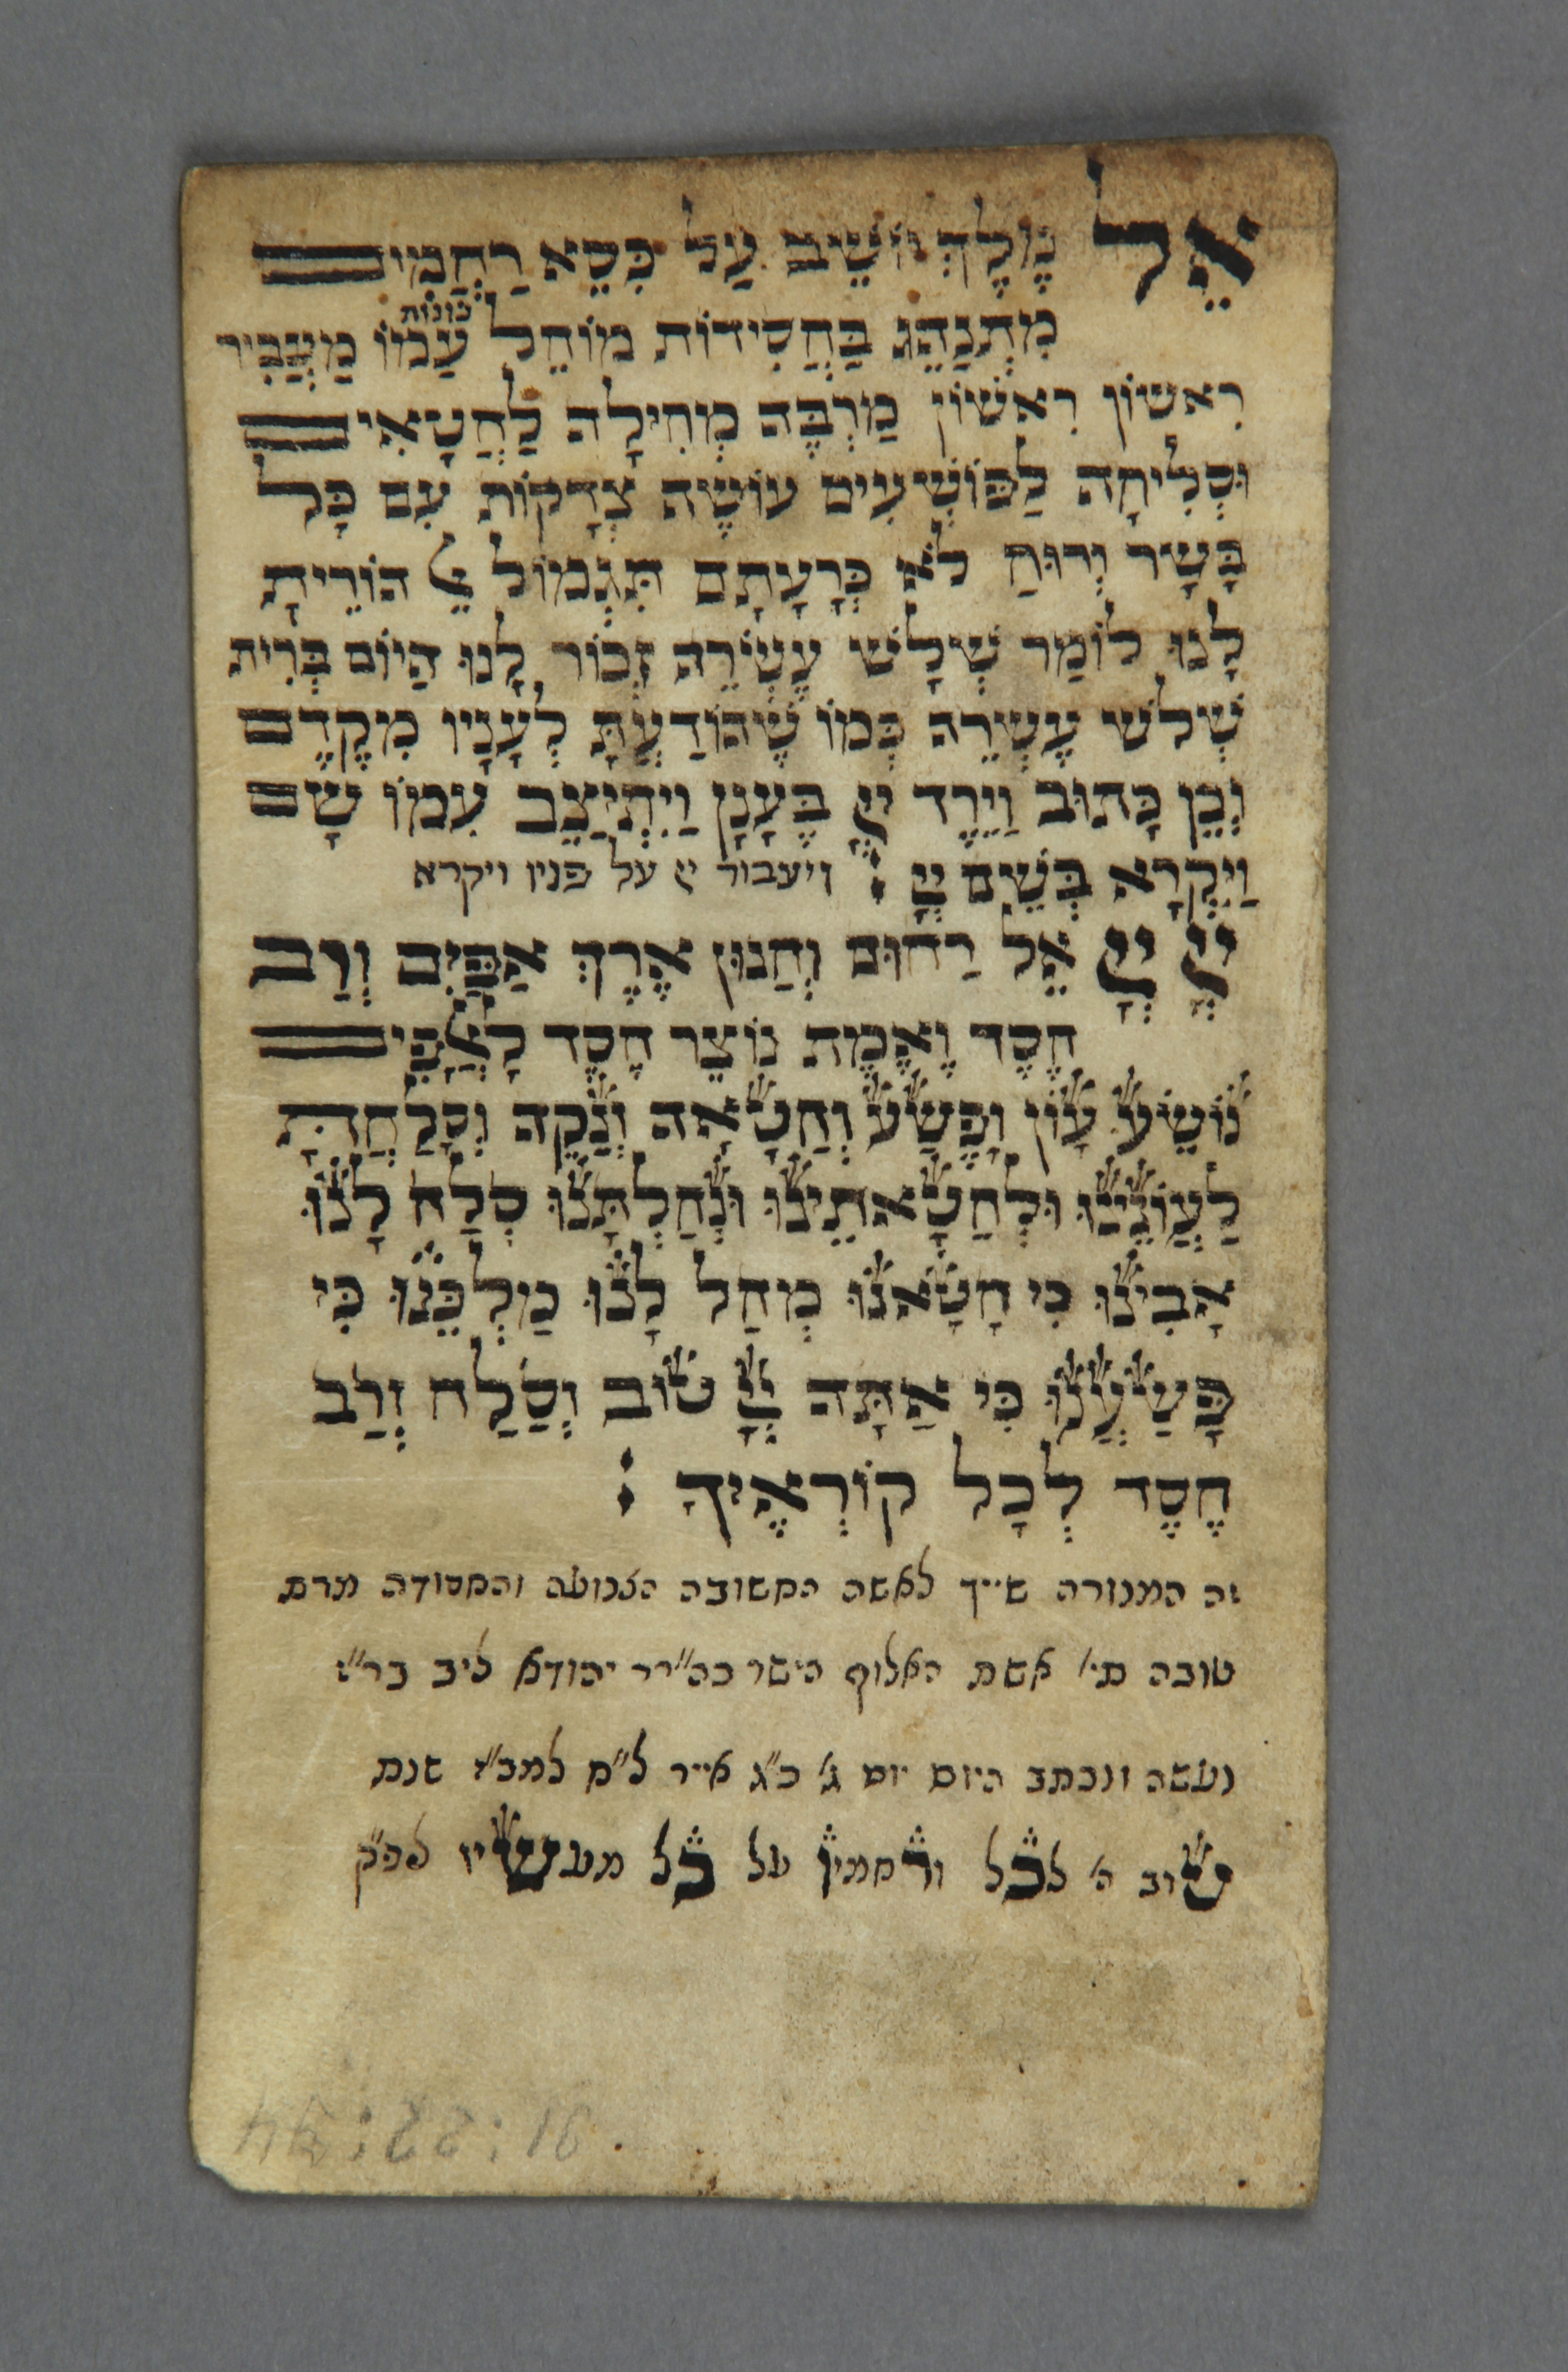 אֵל מֶלֶךְ יוֹשֵׁב עַל כִּסֵא רַחֲמִים
מִתְנַהֵג בַּחֲסִידוֹת מוֹחֵל עֲוֹנוֹת עַמוֹ מַעֲבִיר
רִאשוֹן רִאשוֹן מַרְבֶּה מְחִילָה לַחֲטָאִים
וּסְלִיחָה לַפּוֹשְׁעִים עוֹשֶׂה צְדָקוֹת עִם כָּל
בָּשָׂר וְרוּחַ לֹא כְּרָעָתָם תִּגְמוֹל אֵל הוֹרֵיתָ
לָנוּ לוֹמַר שְׁלֹשׁ עֶשְׂרֵה זְכוֹר לָנוּ הַיוֹם בְּרִית
שְׁלֹשׁ עֶשְׂרֵה כְּמוֹ שֶׁהוֹדַעְתָּ לְעָנָיו מִקֶדֶם
וְכֵן כָּתוּב וַיֵרֶד יְיָ בֶּעָנָן וַיִתְיַצֵב עִמוֹ שָׁם
וַיִקְרָא בְּשֵׁם יְיָ : ויעבור יי על פניו ויקרא
יְיָ יְיָ אֵל רַחוּם וְחַנוּן אֶרֶךְ אַפַּיִם וְרַב
חֶסֶד וֶאֱמֶת נוֹצֵר חֶסֶד לָאֲלָפִים
נוֹשֵׂא עָוֹן וָפֶשַׁע וְחַטָאָה וְנַקֵה וְסָלַחְתָּ
לַעֲוֹנֵינוּ וּלְחַטָאתֵינוּ וּנְחַלְתָּנוּ סְלַח לָנוּ
אָבִינוּ כִּי חָטָאנוּ מְחַל לָנוּ מַלְכֵּנוּ כִּי
פָּשַׁעְנוּ כִּי אַתָּה יְיָ טוֹב וְסַלַח וְרַב
חֶסֶד לְכָל קוֹרְאֶיךָ :
זה המנורה שייך לאשה החשובה הצנועה והחסודה מרת
טובה תי' אשת האלוף הישר כה"רר יהודא ליב בר"י
נעשה ונכתב היום יום ג' כ"ג אייר ל"ח למב"י שנת
טוב ה' לכל ורחמיו על כל מעשיו לפ"ק